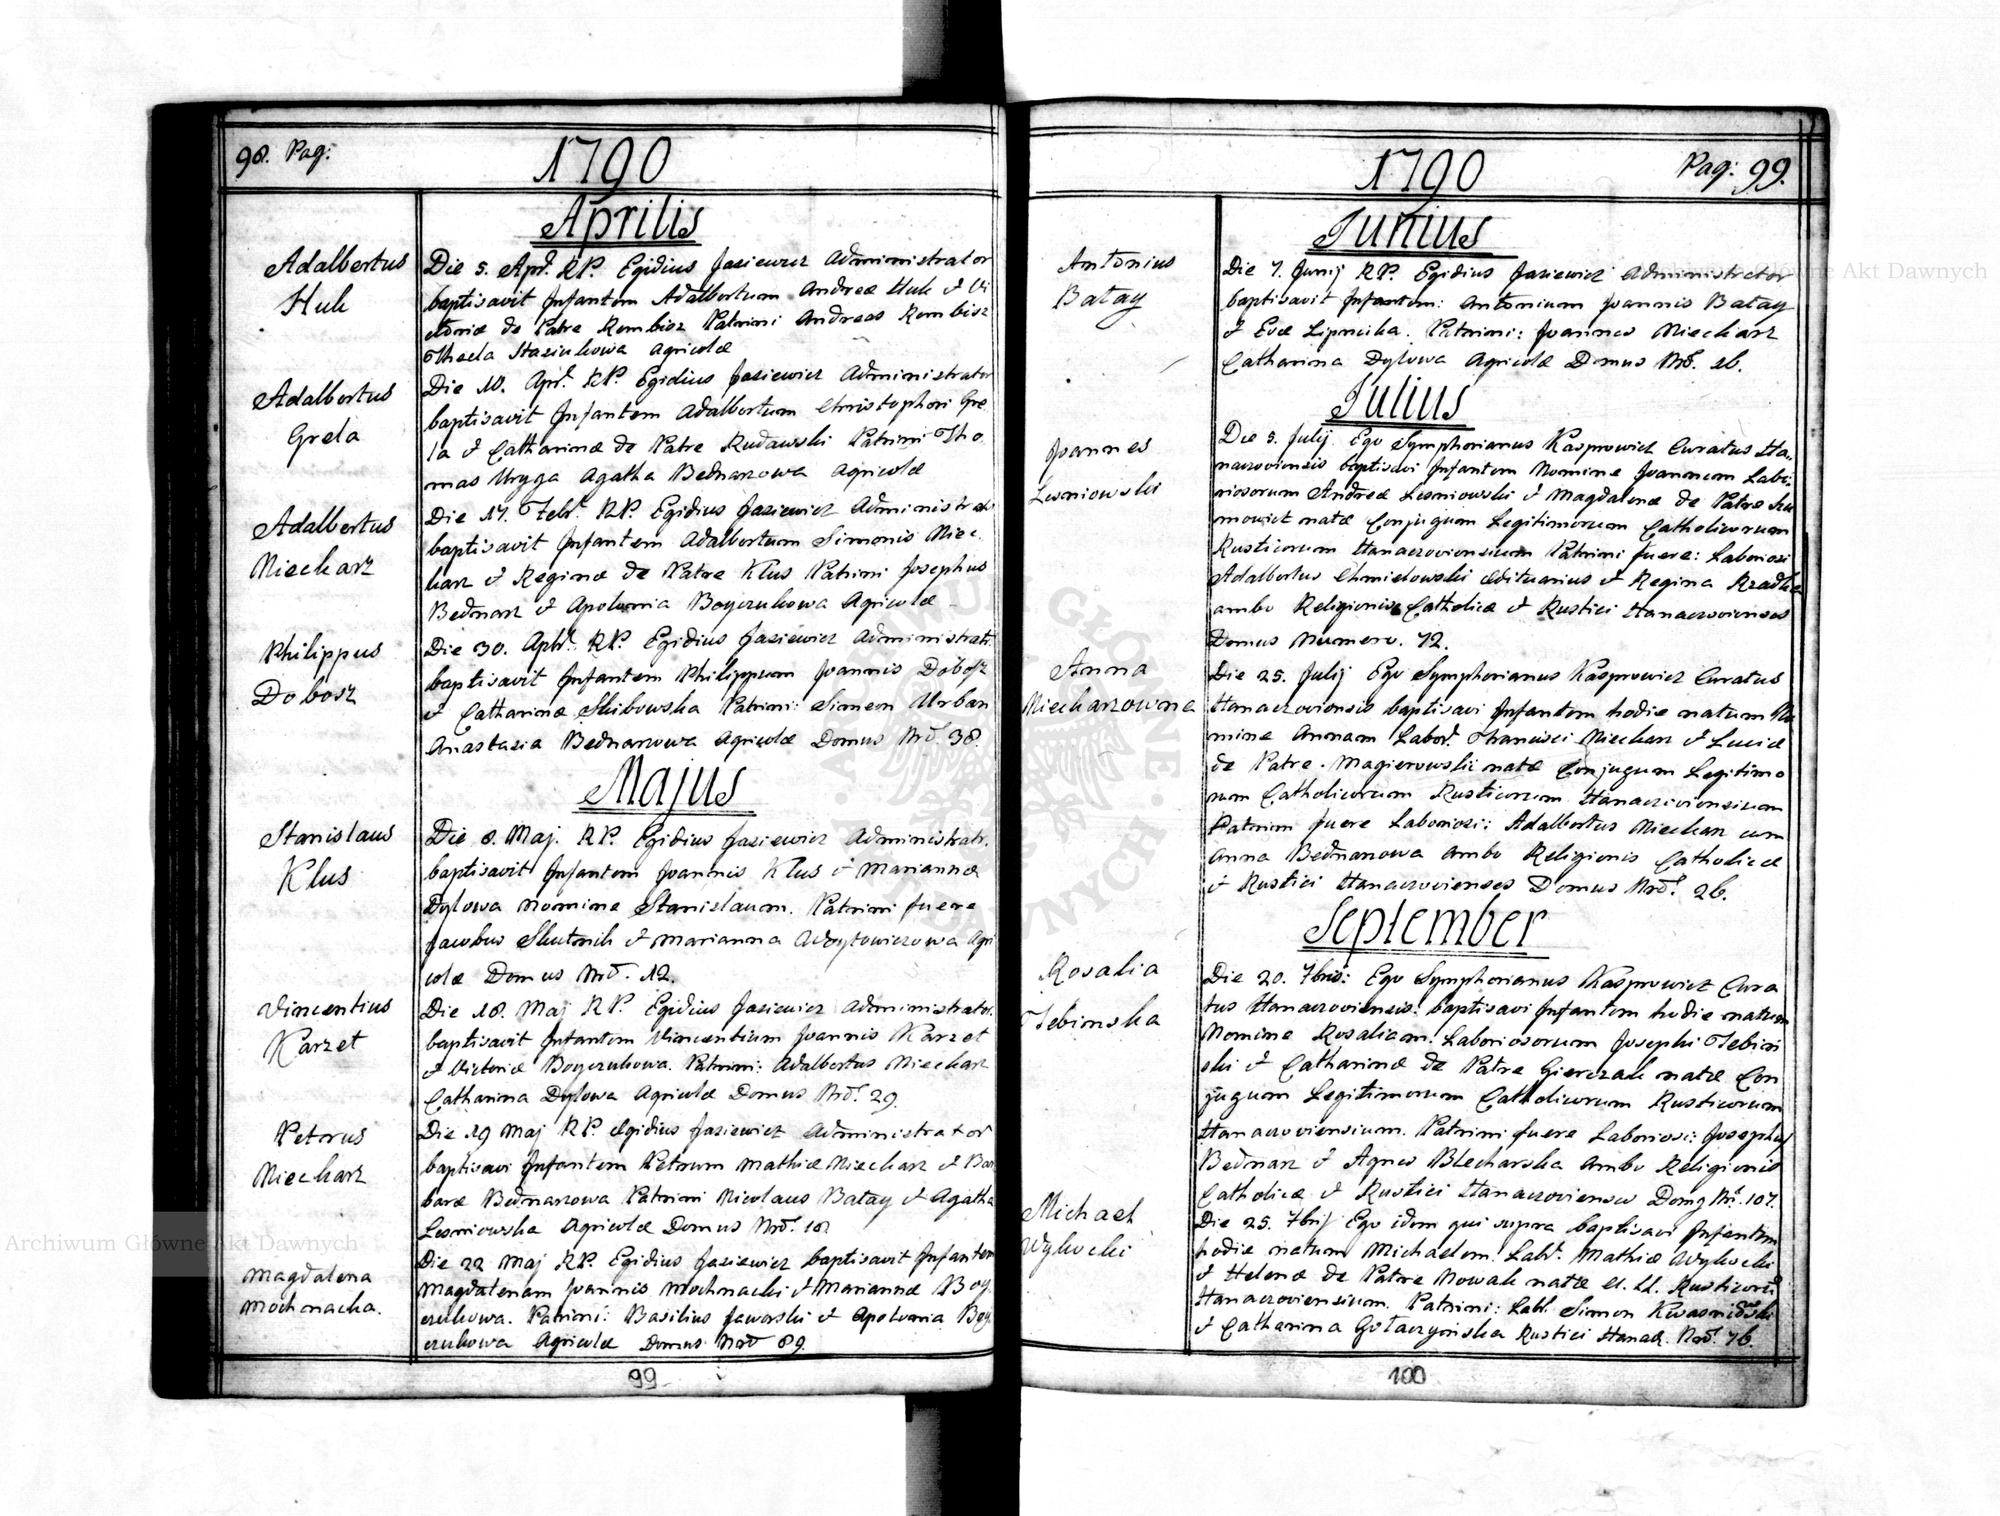 98. Pag:
1790
Aprilis
Adalbertus
Huk
Die 5. Apr. RP. Egidius Jasiewicz Administrator
baptisavit Infantem Adalbertum Andreæ Huk & Vi
ctoriæ de Patre Rembisz Patrini Andreas Rembisz
Thecla Stasiukowa Agricolæ
Adalbertus
Grela
Die 10. Apr. RP. Egidius Jasiewicz Administrator
baptisavit Infantem Adalbertum Christophori Gre
la & Catharinæ de Patre Rudawski Patrini Tho
mas Uryga Agatha Bednarzowa Agricolæ
Adalbertus
Miecharz
Die 17. Febr. RP. Egidius Jasiewicz Administrator
baptisavit Infantem Adalbertum Simonis Miec
harz & Reginæ de Patre Klus Patrini Josephus
Bednarz & Apolonia Boyczukowa Agricolæ
Philippus
Dobosz
Die 30. Apr. RP. Egidius Jasiewicz Administrat.
baptisavit Infantem Philippum Joannis Dobosz
& Catharinæ Skibowska Patrini: Simeon Urban
Anastasia Bednarzowa Agricolæ Domus Nro. 38.
Majus
Stanislaus
Klus
Die 8. Maj. RP. Egidius Jasiewicz Administratr.
baptisavit Infantem Joannis Klus & Mariannæ
Dylowa nomine Stanislaum. Patrini fuere
Jacobus Skutnik & Marianna Woytowiczowa Agri
colæ Domus Nro. 12.
Vincentius
Karzet
Die 18. Maj RP. Egidius Jasiewicz Administrator.
baptisavit Infantem Vincentium Joannis Karzet
& Victoriæ Boyczukowa. Patrini: Adalbertus Miecharz
Catharina Dylowa Agricolæ Domus Nro. 29.
Petrus
Miecharz
Die 19 Maj RP. Egidius Jasiewicz Administrator
baptisavi Infantem Petrum Mathiæ Miecharz & Bar
baræ Bednarzowa Patrini Nicolaus Batay & Agatha
Lesniowska Agricolæ Domus Nro. 18.
Magdalena
Mochnacka.
Die 22 Maj RP. Egidius Jasiewicz baptisavit Infantem
Magdalenam Joannis Mochnacki & Mariannæ Boy
czukowa. Patrini: Basilius Jaworski & Apolonia Boy
czukowa Agricolæ Domus Nro 89.
99
1790
Pag: 99.
Junius
Antonius
Batay
Die 7. Junij RP. Egidius Jasiewicz Administrator
baptisavit Infantem: Antonium Joannis Batay
& Evæ Lipnicka. Patrini: Joannes Miecharz
Catharina Dylowa Agricolæ Domus Nro. 26.
Julius
Joannes
Lesniowski
Die 5. Julij. Ego Symphorianus Kasprowicz Curatus Ha..
naczoviensis baptisavi Infantem Nomine Joannem Labo
riosorum Andreæ Lesniowski & Magdalenæ de Patre Szu
mowicz natæ Conjugum Legitimorum Catholicorum
Rusticorum Hanaczoviensium Patrini fuere: Laboriosi
Adalbertus Chmielowski Ædituarius & Regina
ambo Religionis Catholicæ & Rustici Hanaczovienses
Domus Numero. 72.
Anna
Miecharzowna
Die 25. Julij Ego Symphorianus Kasprowicz Curatus
Hanaczoviensis baptisavi Infantem hodie natum No
mine Annam Labor. Francisci Miecharz & Luciæ
de Patre. Magierowski natæ Conjugum Legitimo
rum Catholicorum Rusticorum Hanaczoviensium
Patrini fuere Laboriosi: Adalbertus Miecharz cum
Anna Bednarzowa ambo Religionis Catholicæ
& Rustici Hanaczovienses Domus Nro. 26.
September
Rosalia
Tebinska
Die 20. 7bris: Ego Symphorianus Kasprowicz Cura
tus Hanaczoviensis baptisavi Infantem hodie natum
Nomine Rosaliam. Laboriosorum Josephi Tebin
ski & Catharinæ de Patre Gierczak natæ Con
jugum Legitimorum Catholicorum Rusticorum
Hanaczoviensium. Patrini fuere Laboriosi: Josephus
Bednarz & Agnes Blecharska ambo Religionis
Catholicæ & Rustici Hanaczovienses Domg Nr. 107.
Michael
Wysocki
Die 25. 7brij Ego idem qui supra baptisavi Infantem
hodie natum Michaelem. Labr. Mathiæ Wysocki
& Helenæ de Patre Nowak natæ Rusticor.
Hanaczoviensium. Patrini: Labr. Simon
& Catharina Gołaczyńska Rustici Hanacz. Nro. 76.
100
Archiwum Główne Akt Dawnych
Archiwum Główne Akt Dawnych